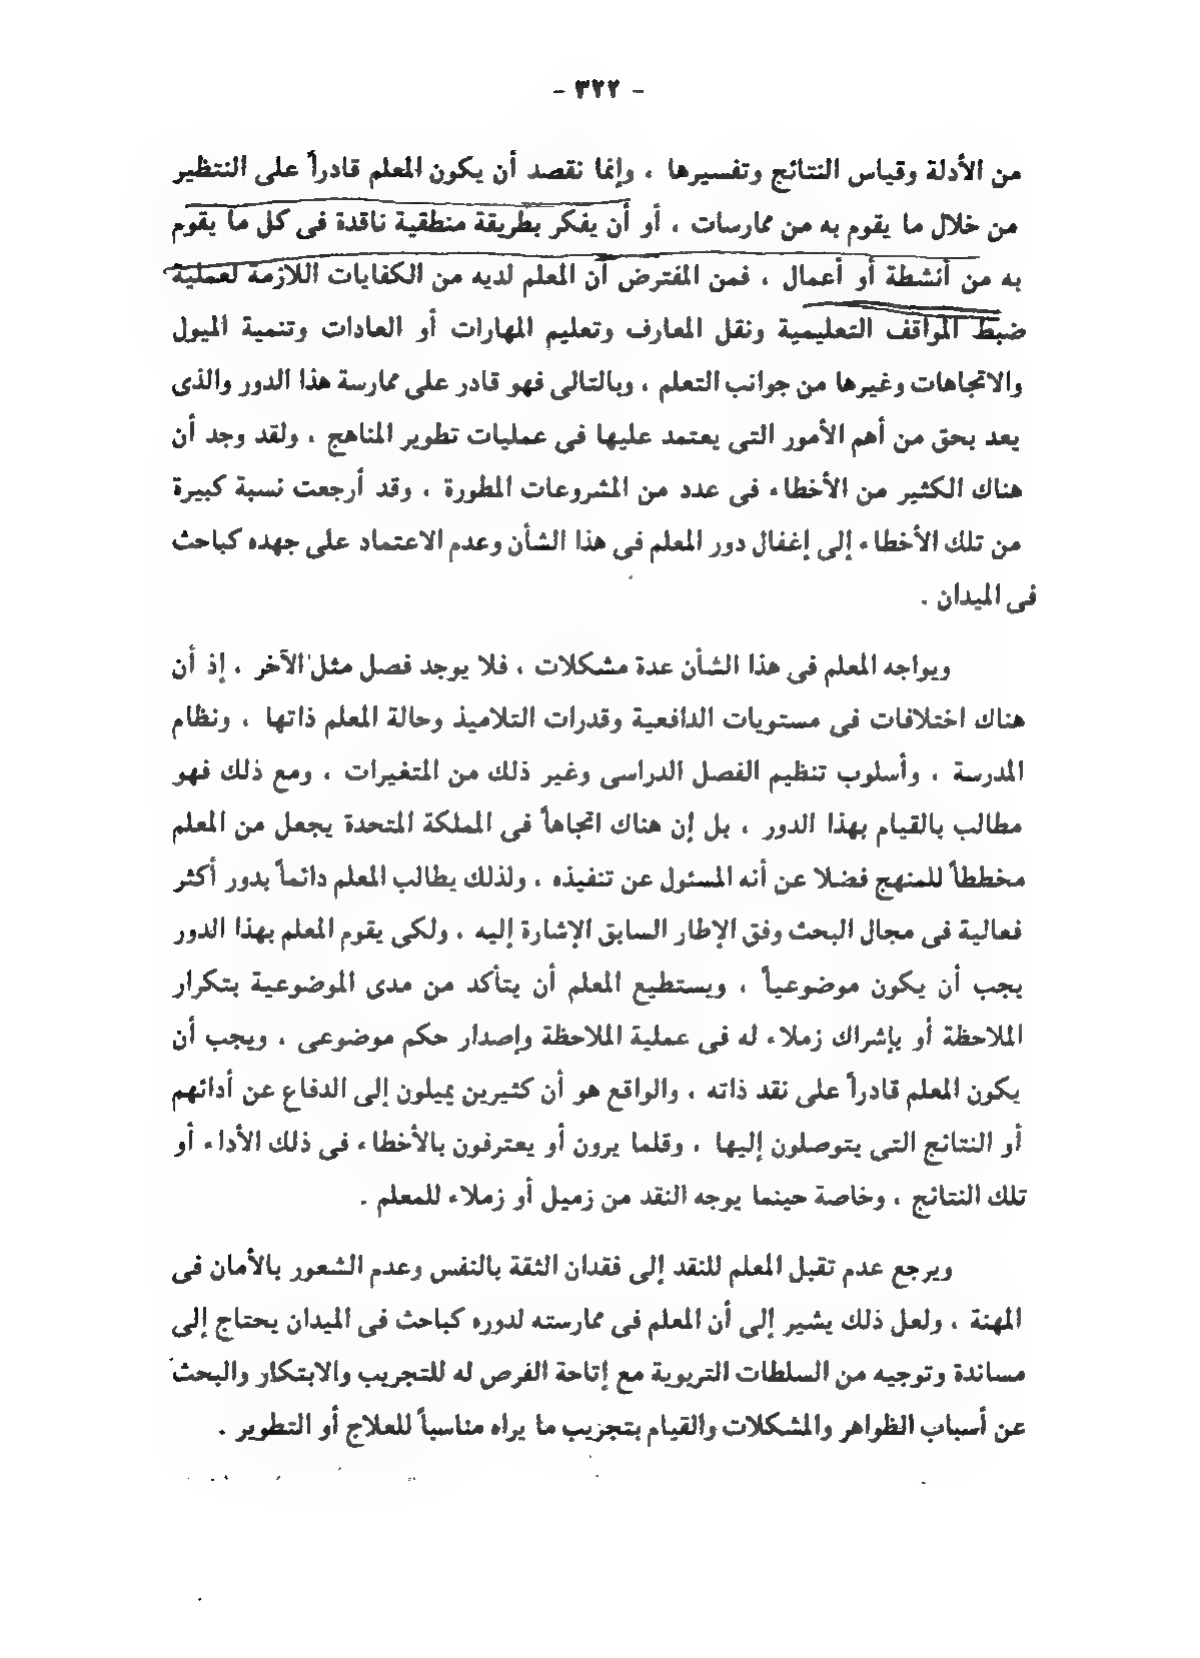 - ٣٢٢ -
من الأدلة وقياس النتائج وتفسيرها ، وإنما نقصد أن يكون المعلم قادراً على التنظير
من خلال ما يقوم به من ممارسات ، أو أن يفكر بطريقة منطقية ناقدة فى كل ما يقوم
به من أنشطة أو أعمال ، فمن المفترض أن المعلم لديه من الكفايات اللازمة لعملية
ضبط المواقف التعليمية ونقل المعارف وتعليم المهارات أو العادات وتنمية الميول
والاتجاهات وغيرها من جوانب التعلم ، وبالتالى فهو قادر على ممارسة هذا الدور والذى
يعد بحق من أهم الأمور التى يعتمد عليها فى عمليات تطوير المناهج ، ولقد وجد أن
هناك الكثير من الأخطاء فى عدد من المشروعات المطورة ، وقد أرجعت نسبة كبيرة
من تلك الأخطاء إلى إغفال دور المعلم فى هذا الشأن وعدم الاعتماد على جهده كباحث
فى الميدان .
ويواجه المعلم فى هذا الشأن عدة مشكلات ، فلا يوجد فصل مثل الآخر ، إذ أن
هناك اختلافات فى مستويات الدافعية وقدرات التلاميذ وحالة المعلم ذاتها ، ونظام
المدرسة ، وأسلوب تنظيم الفصل الدراسى وغير ذلك من المتغيرات ، ومع ذلك فهو
مطالب بالقيام بهذا الدور ، بل إن هناك اتجاهاً فى المملكة المتحدة يجعل من المعلم
مخططاً للمنهج فضلا عن أنه المسئول عن تنفيذه ، ولذلك يطالب المعلم دائماً بدور أكثر
فعالية فى مجال البحث وفق الإطار السابق الإشارة إليه ، ولكى يقوم المعلم بهذا الدور
يجب أن يكون موضوعياً ، ويستطيع المعلم أن يتأكد من مدى الموضوعية بتكرار
الملاحظة أو بإشراك زملاء له فى عملية الملاحظة وإصدار حكم موضوعى ، ويجب أن
يكون المعلم قادراً على نقد ذاته ، والواقع هو أن كثيرين يميلون إلى الدفاع عن أدائهم
أو النتائج التى يتوصلون إليها ، وقلما يرون أو يعترفون بالأخطاء فى ذلك الأداء أو
تلك النتائج ، وخاصة حينما يوجه النقد من زميل أو زملاء للمعلم .
ويرجع عدم تقبل المعلم للنقد إلى فقدان الثقة بالنفس وعدم الشعور بالأمان فى
المهنة ، ولعل ذلك يشير إلى أن المعلم فى ممارسته لدوره كباحث فى الميدان يحتاج إلى
مساندة وتوجيه من السلطات التربوية مع إتاحة الفرص له للتجريب والابتكار والبحث
عن أسباب الظواهر والمشكلات والقيام بتجريب ما يراه مناسباً للعلاج أو التطوير .